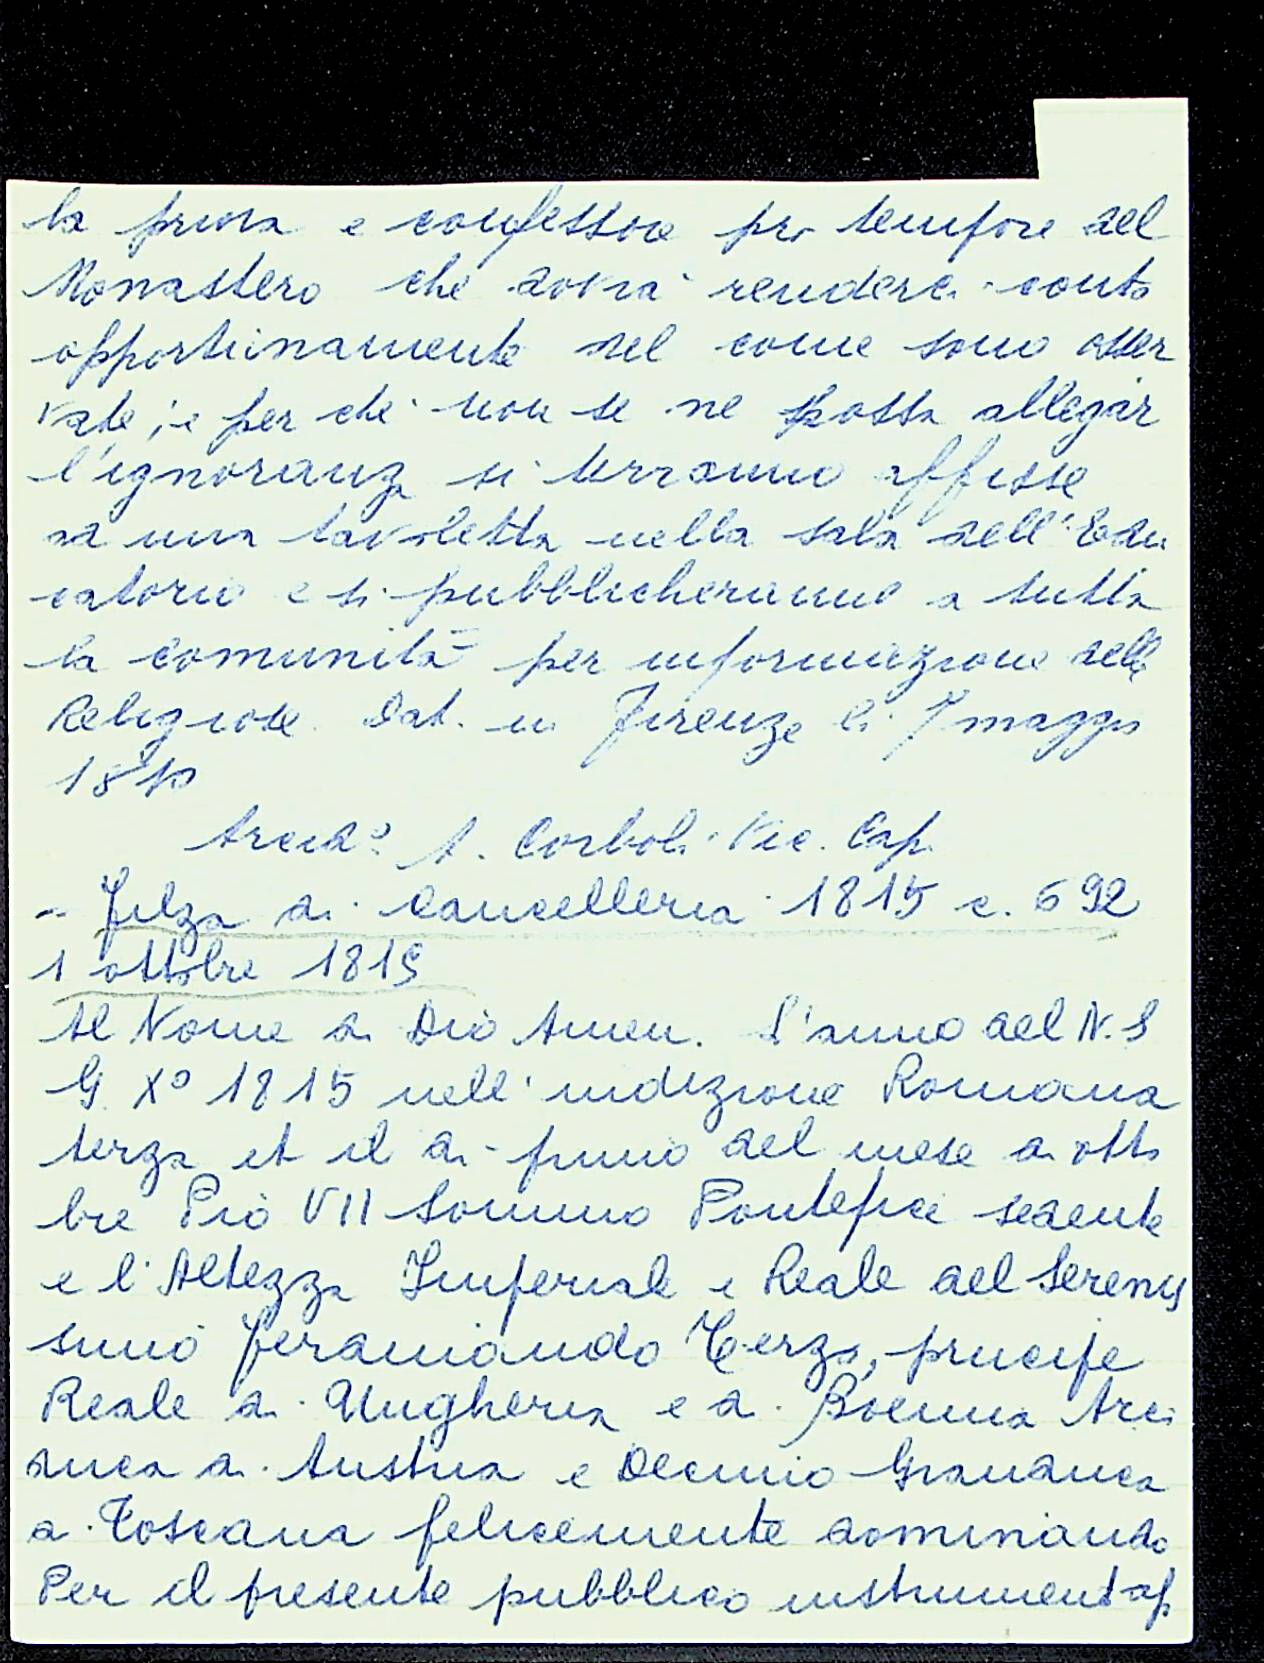 la priora e confessore pro tempore del
Monastero che dovrà rendere conto
opportunamente del come sono osser
vate, e per che non se ne possa allegar
l'ignoranza si terranno affisse
ad una tavoletta nella sala dell'Edu
catorio e si pubblicheranno a tutta
la comunità per informazione delle
Religiose. Dat. in Firenze li 7 maggio
1810
Arcid.º A. Corboli Vic. Cap.
- Filza di Cancelleria 1815 c. 692
1 ottobre 1815
Al Nome di Dio Amen. L'anno del N. S
G. Xº 1815 nell'indizione Romana
terza et il dì primo del mese di otto
bre Pio VII Sommo Pontefice sedente
e l'Altezza Imperiale e Reale del Serenis
simo Ferdinando Terzo, principe
Reale di Ungheria e di Boemia Arci
duca di Austria e Decimo Granduca
di Toscana felicemente dominando
Per il presente pubblico instrumento